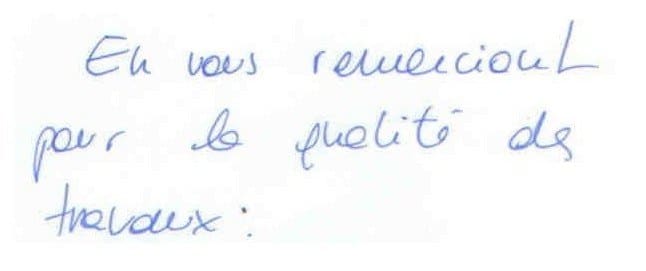 En vous remerciant
pour la qualité des
travaux :